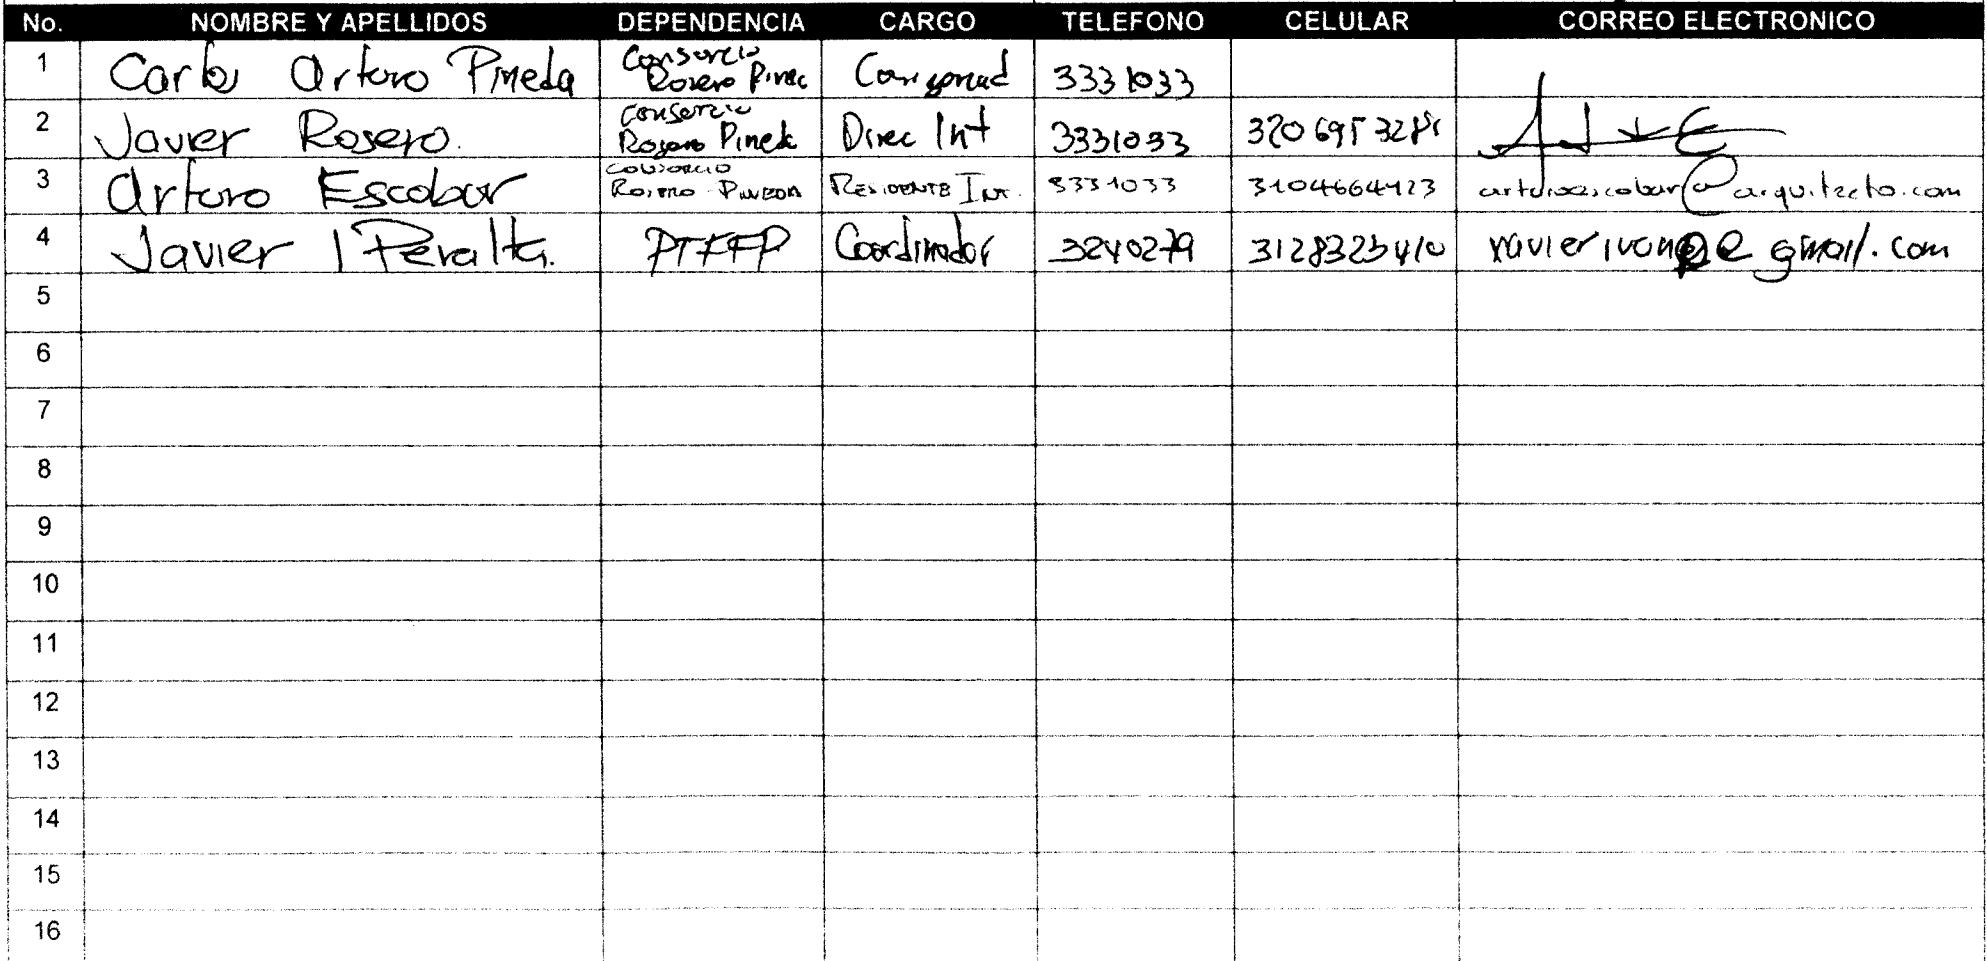 No. NOMBRE Y APELLIDOS DEPENDENCIA CARGO TELEFONO CELULAR CORREO ELECTRONICO
1 Carlos Arturo Pineda Consorcio Rosero Pinec 3331033
2 Javier Rosero. Consorcio Rosero Pineda Direc Int 3331033
3 Arturo Escobar CONSORCIO ROSERO PINEDA RESIDENTE INT. 3331033 3104664123 arturoescobar@arquitecto.com
4 Javier I Peralta. PTFFP Coordinador 3240279 3128323410 gmail.com
5
6
7
8
9
10
11
12
13
14
15
16